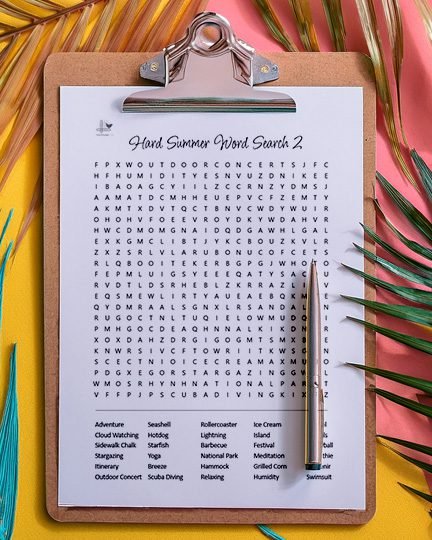 Hard Summer Word Search 2
F P X W O U T D O O R C O N C E R T S J F C
H F H U M I D I T Y E S N V U Z D N I K E E
I B A O A G C Y I I L Z C C R N Z Y D M S J
A A M A T D C M H H E U E P V C F Z E M T Y
A K M T X D V T Q C T B N V C W D Y W U I R
O H O H V F O E E V R O Y D K Y W D A H V R
H W C D M O M G N A I D Q D G A W H L G A L
E X K G M C L I B T J Y K C B O U Z K V L R
Z X Z S R L V L A R U B O N U C O F C E T S
R L Q B O O I T E K E R B G P G J W H O
F E P M L U I G S Y E E E Q A T Y S A
R V D T L D S R H E B L Z K R R A D
E Q S M E W L I R T Y A U E A E B Q K
Q Y D M R A A L S G N X L R S A N D A
R U G O C T N L T U Q I E L O W M U D
P M H G O C D E A Q H N N A L K I K D
X O X D A H Z D R G I G O G M T S M X
K N W R S I V C F T O W R I I T K W S
S C E C T N I O I C E C R E A M A X M
P D G X E G O R S T A R G A Z I N G
W M O S R H Y N H N A T I O N A L P A
V F F P J P S C U B A D I V I N G K I
Adventure Seashell Rollercoaster Ice Cream
Cloud Watching Hotdog Lightning Island
Sidewalk Chalk Starfish Barbecue Festival
Stargazing Yoga National Park Meditation
Itinerary Breeze Hammock Grilled Corn
Outdoor Concert Scuba Diving Relaxing Humidity Swimsuit